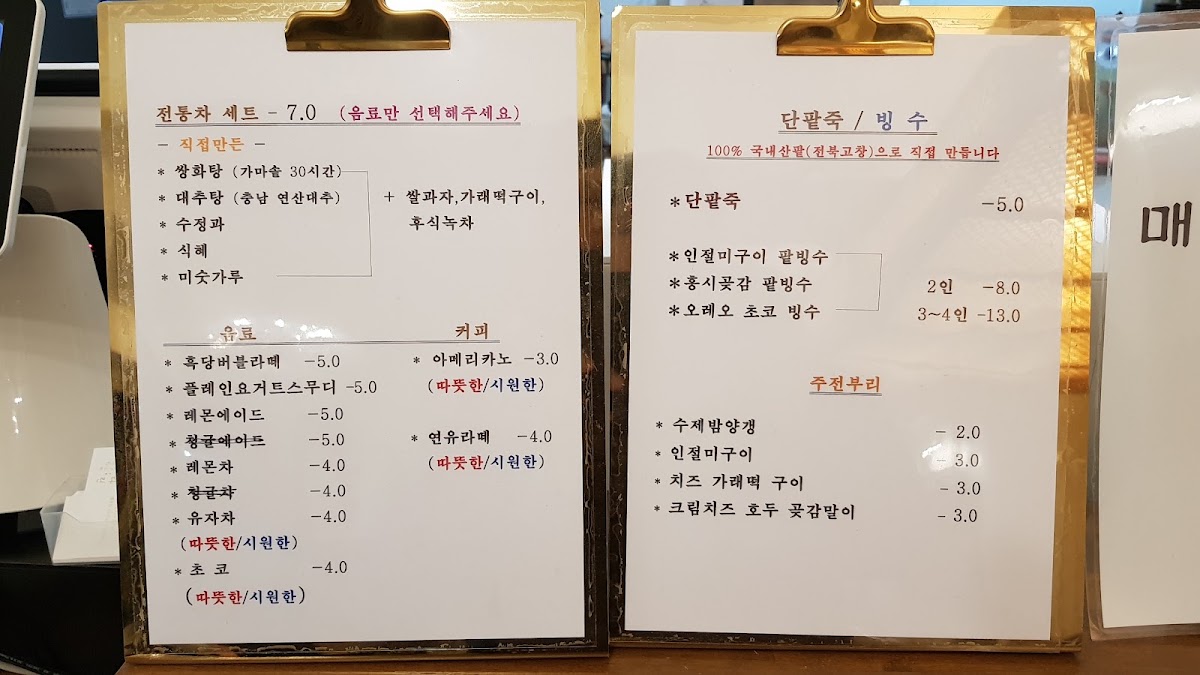 전통차 세트 - 7.0 (음료만 선택해주세요)
- 직접만든 -
* 쌍화탕 (가마솥 30시간)
* 대추탕 (충남 연산대추)
* 수정과
* 식혜
* 미숫가루
+ 쌀과자,가래떡구이,
후식녹차
음료
* 흑당버블라떼 -5.0
* 플레인요거트스무디 -5.0
* 레몬에이드 -5.0
* 청귤에이드 -5.0
* 레몬차 -4.0
* 청귤차 -4.0
* 유자차 -4.0
(따뜻한/시원한)
* 초코 -4.0
(따뜻한/시원한)
커피
* 아메리카노 -3.0
(따뜻한/시원한)
* 연유라떼 -4.0
(따뜻한/시원한)
단팥죽 / 빙수
100% 국내산팥(전북고창)으로 직접 만듭니다
*단팥죽 -5.0
*인절미구이 팥빙수
*홍시곶감 팥빙수 2인 -8.0
*오레오 초코 빙수 3~4인 -13.0
주전부리
* 수제밤양갱 - 2.0
* 인절미구이 - 3.0
* 치즈 가래떡 구이 - 3.0
* 크림치즈 호두 곶감말이 - 3.0
매